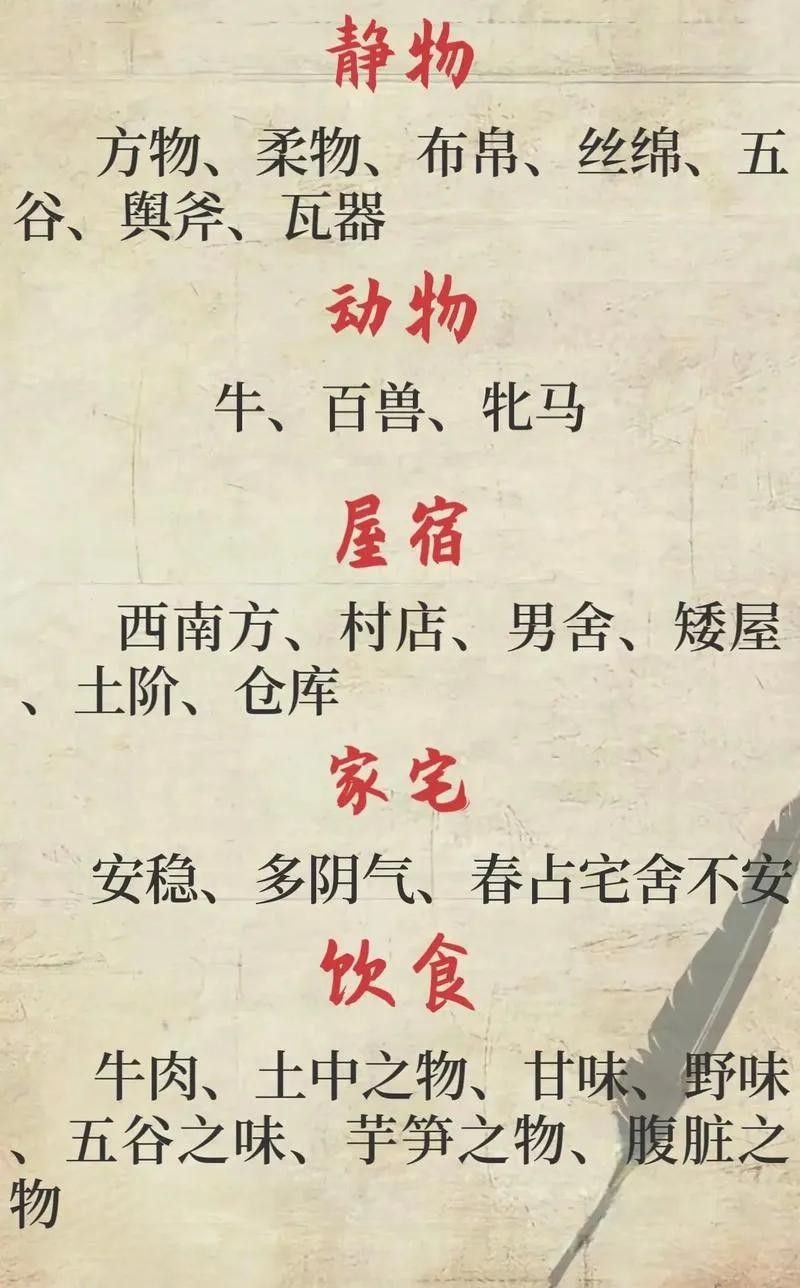 静物
方物、柔物、布帛、丝绵、五
谷、舆斧、瓦器
动物
牛、百兽、牝马
屋宿
西南方、村店、男舍、矮屋
、土阶、仓库
家宅
安稳、多阴气、春占宅舍不安
饮食
牛肉、土中之物、甘味、野味
、五谷之味、芋笋之物、腹脏之
物